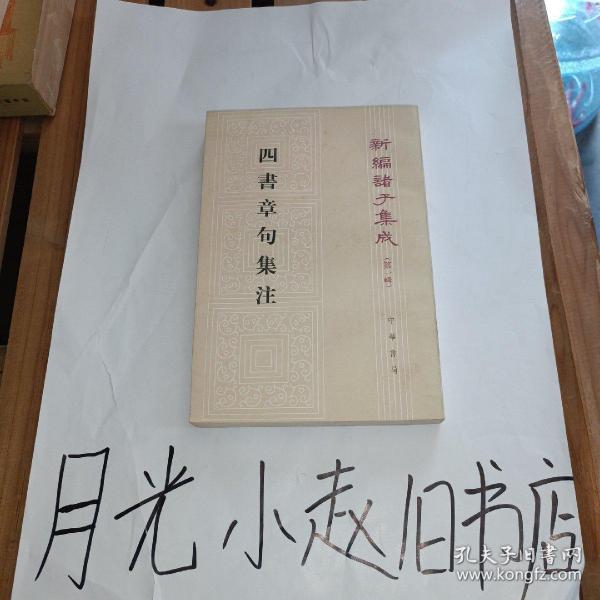 新編諸子集成
(第一輯)
四書章句集注
中華書局
月光小赵旧书店
孔夫子旧书网
www.kongfz.com